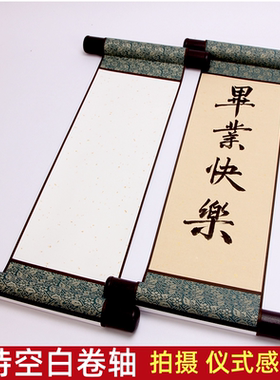 畢業快樂
特空白卷轴 拍摄 仪式感